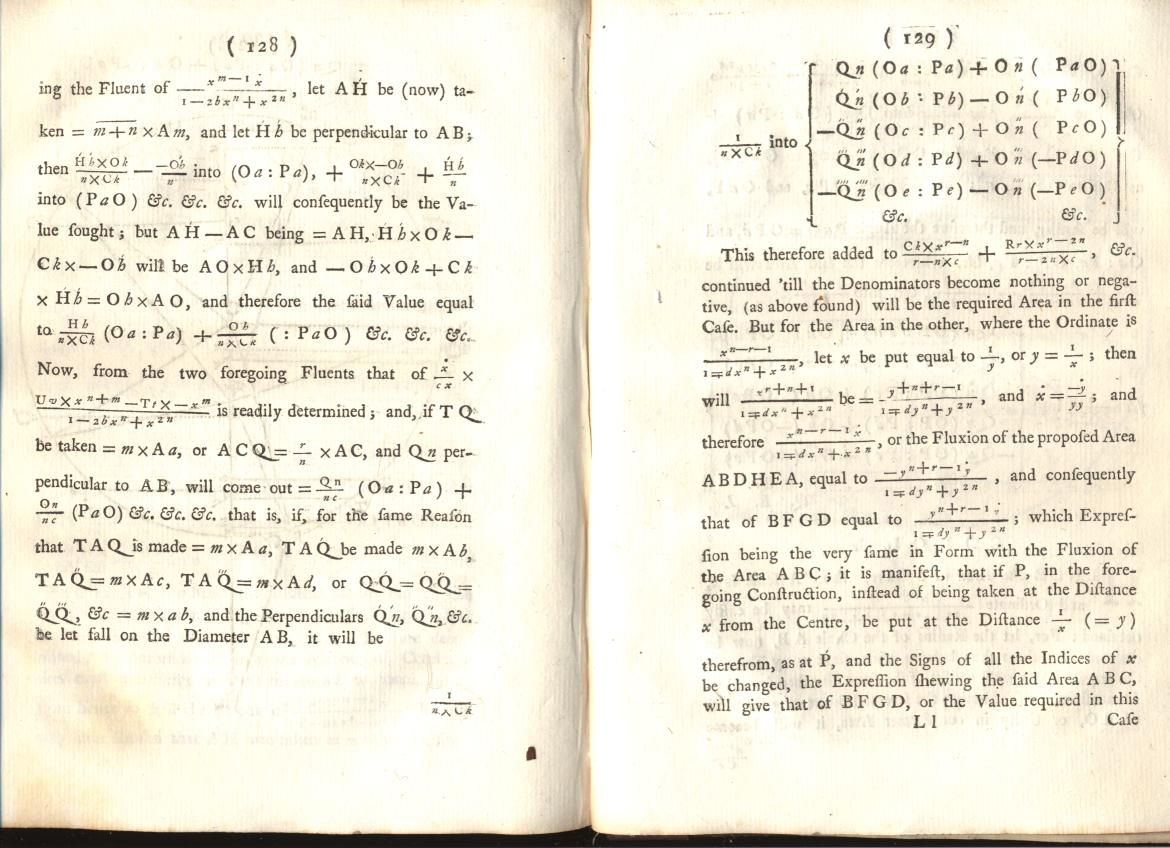 ( 128 )
ing the Fluent of x^{m—1} ẋ / 1 — 2bx^n + x^{2n}, let A H́ be (now) ta-
ken = m+n × A m, and let H́ b́ be perpendicular to A B;
then H́b́×Ok / n×Ck — —Ob́ / n into (O a : P a), + Ok×—Ob́ / n×Ck + H́b́ / n
into (P a O) &c. &c. &c. will conſequently be the Va-
lue ſought; but A H́ — A C being = A H, H́ b́ × O k —
C k × — O b́ will be A O × H b, and — O b́ × O k + C k
× H́ b́ = O b × A O, and therefore the ſaid Value equal
to Hb / n×Ck (O a : P a) + Ob / n×Ck ( : P a O ) &c. &c. &c.
Now, from the two foregoing Fluents that of ẋ / cx ×
Uv × x^{n+m} — Tt × — x^m / 1 — 2bx^n + x^{2n} is readily determined; and, if T Q
be taken = m × A a, or A C Q = r / n × A C, and Q n per-
pendicular to A B, will come out = Qn / nc (O a : P a) +
On / nc (P a O) &c. &c. &c. that is, if, for the ſame Reaſon
that T A Q is made = m × A a, T A Q́ be made m × A b,
T A Q̎ = m × A c, T A Q = m × A d, or Q Q́ = Q́ Q̎ =
Q̎ Q, &c = m × a b, and the Perpendiculars Q́ ń, Q̎ n̎, &c.
be let fall on the Diameter A B, it will be
1 / n×Ck
( 129 )
1 / n×Ck into
Q n (O a : P a) + O n ( P a O)
Q́ ń (O b : P b) — O ń ( P b O)
—Q̎ n̎ (O c : P c) + O n̎ ( P c O)
Q‴ n‴ (O d : P d) + O n‴ (—P d O)
—Q⁗ n⁗ (O e : P e) — O n⁗ (—P e O)
&c. &c.
This therefore added to Ck×x^{r—n} / r—n×c + Rr×x^{r—2n} / r—2n×c, &c.
continued 'till the Denominators become nothing or nega-
tive, (as above found) will be the required Area in the firſt
Caſe. But for the Area in the other, where the Ordinate is
x^{n—r—1} / 1∓dx^n + x^{2n}, let x be put equal to 1 / y, or y = 1 / x; then
will x^{r+n+1} / 1∓dx^n + x^{2n} be = y^{+n+r—1} / 1∓dy^n + y^{2n}, and ẋ = —ẏ / yy; and
therefore x^{n—r—1} ẋ / 1∓dx^n + x^{2n}, or the Fluxion of the propoſed Area
A B D H E A, equal to —y^{n+r—1} ẏ / 1∓dy^n + y^{2n}, and conſequently
that of B F G D equal to y^{n+r—1} ẏ / 1∓dy^n + y^{2n}; which Expreſ-
ſion being the very ſame in Form with the Fluxion of
the Area A B C; it is manifeſt, that if P, in the fore-
going Conſtruction, inſtead of being taken at the Diſtance
x from the Centre, be put at the Diſtance 1 / x (= y)
therefrom, as at Ṕ, and the Signs of all the Indices of x
be changed, the Expreſſion ſhewing the ſaid Area A B C,
will give that of B F G D, or the Value required in this
L l Caſe